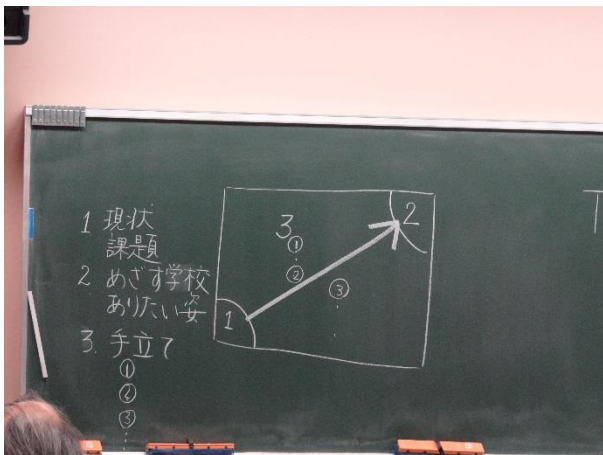 1 現状
課題
2 めざす学校
ありたい姿
3. 手立て
①
②
③
2
3
①
②
③
1
T